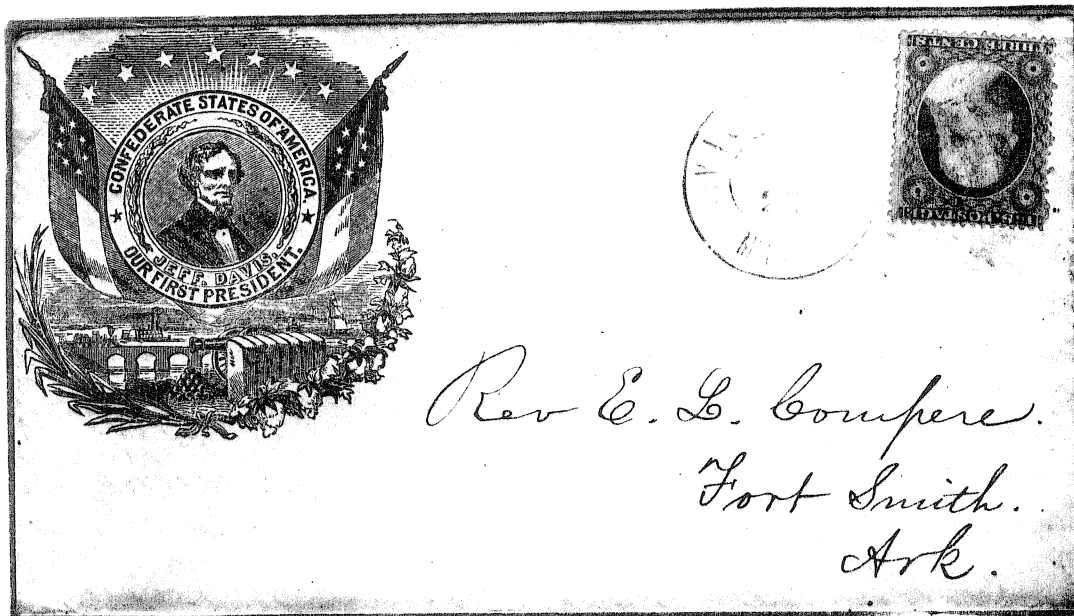 CONFEDERATE STATES OF AMERICA.
JEFF. DAVIS,
OUR FIRST PRESIDENT.
THREE CENTS
U.S. POSTAGE
Rev E. L. Compere.
Fort Smith.
Ark.